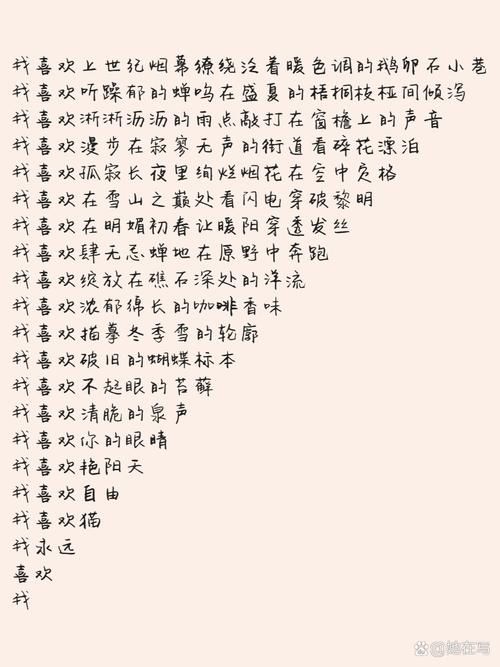 我喜欢上世纪烟幕缭绕泛着暖色调的鹅卵石小巷
我喜欢听躁郁的蝉鸣在盛夏的梧桐枝桠间倾泻
我喜欢淅淅沥沥的雨点敲打在窗檐上的声音
我喜欢漫步在寂寥无声的街道看碎花漂泊
我喜欢孤寂长夜里绚烂烟花在空中定格
我喜欢在雪山之巅处看闪电穿破黎明
我喜欢在明媚初春让暖阳穿透发丝
我喜欢肆无忌蝉地在原野中奔跑
我喜欢绽放在礁石深处的洋流
我喜欢浓郁绵长的咖啡香味
我喜欢描摹冬季雪的轮廓
我喜欢破旧的蝴蝶标本
我喜欢不起眼的苔藓
我喜欢清脆的泉声
我喜欢你的眼睛
我喜欢艳阳天
我喜欢自由
我喜欢猫
我永远
喜欢
我
她在写